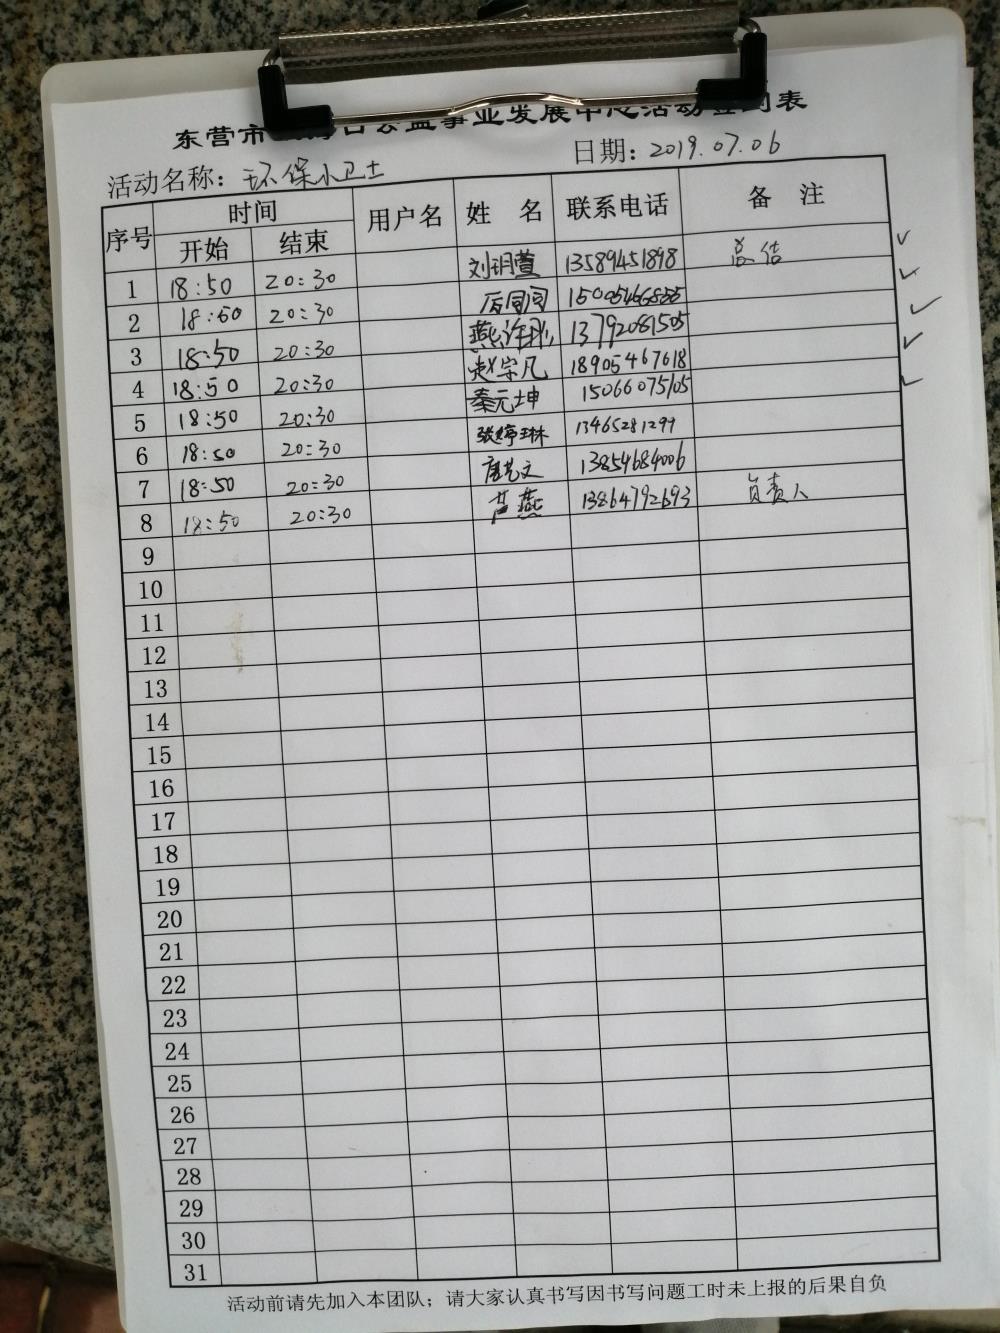 东营市 公益事业发展中心活动签到表
活动名称：环保小卫士 日期：2019.07.06
序号 时间 用户名 姓 名 联系电话 备 注
开始 结束
1 18:50 20:30 刘玥萱 13589451898 总结
2 18:50 20:30 15005466885
3 18:50 20:30 13792081505
4 18:50 20:30 赵宗凡 18905467618
5 18:50 20:30 秦元坤 15066075105
6 18:50 20:30 张婷琳
7 18:50 20:30 唐艺文 13854684006
8 18:50 20:30 芦燕 13864792693 负责人
9
10
11
12
13
14
15
16
17
18
19
20
21
22
23
24
25
26
27
28
29
30
31
活动前请先加入本团队；请大家认真书写因书写问题工时未上报的后果自负